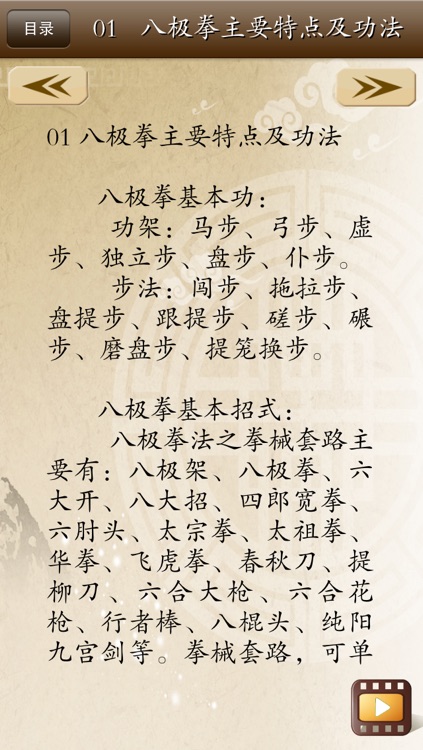 目录
01 八极拳主要特点及功法
01八极拳主要特点及功法
八极拳基本功：
功架：马步、弓步、虚
步、独立步、盘步、仆步。
步法：闯步、拖拉步、
盘提步、跟提步、磋步、碾
步、磨盘步、提笼换步。
八极拳基本招式：
八极拳法之拳械套路主
要有：八极架、八极拳、六
大开、八大招、四郎宽拳、
六肘头、太宗拳、太祖拳、
华拳、飞虎拳、春秋刀、提
柳刀、六合大枪、六合花
枪、行者棒、八棍头、纯阳
九宫剑等。拳械套路，可单